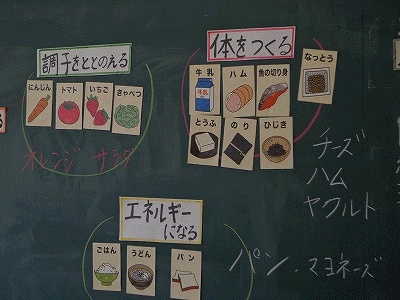 調子をととのえる
にんじん
トマト
いちご
きゃべつ
オレンジ サラダ
体をつくる
牛乳
ハム
魚の切り身
なっとう
とうふ
のり
ひじき
チーズ
ハム
ヤクルト
エネルギー
になる
ごはん
うどん
パン
パン・マヨネーズ
る